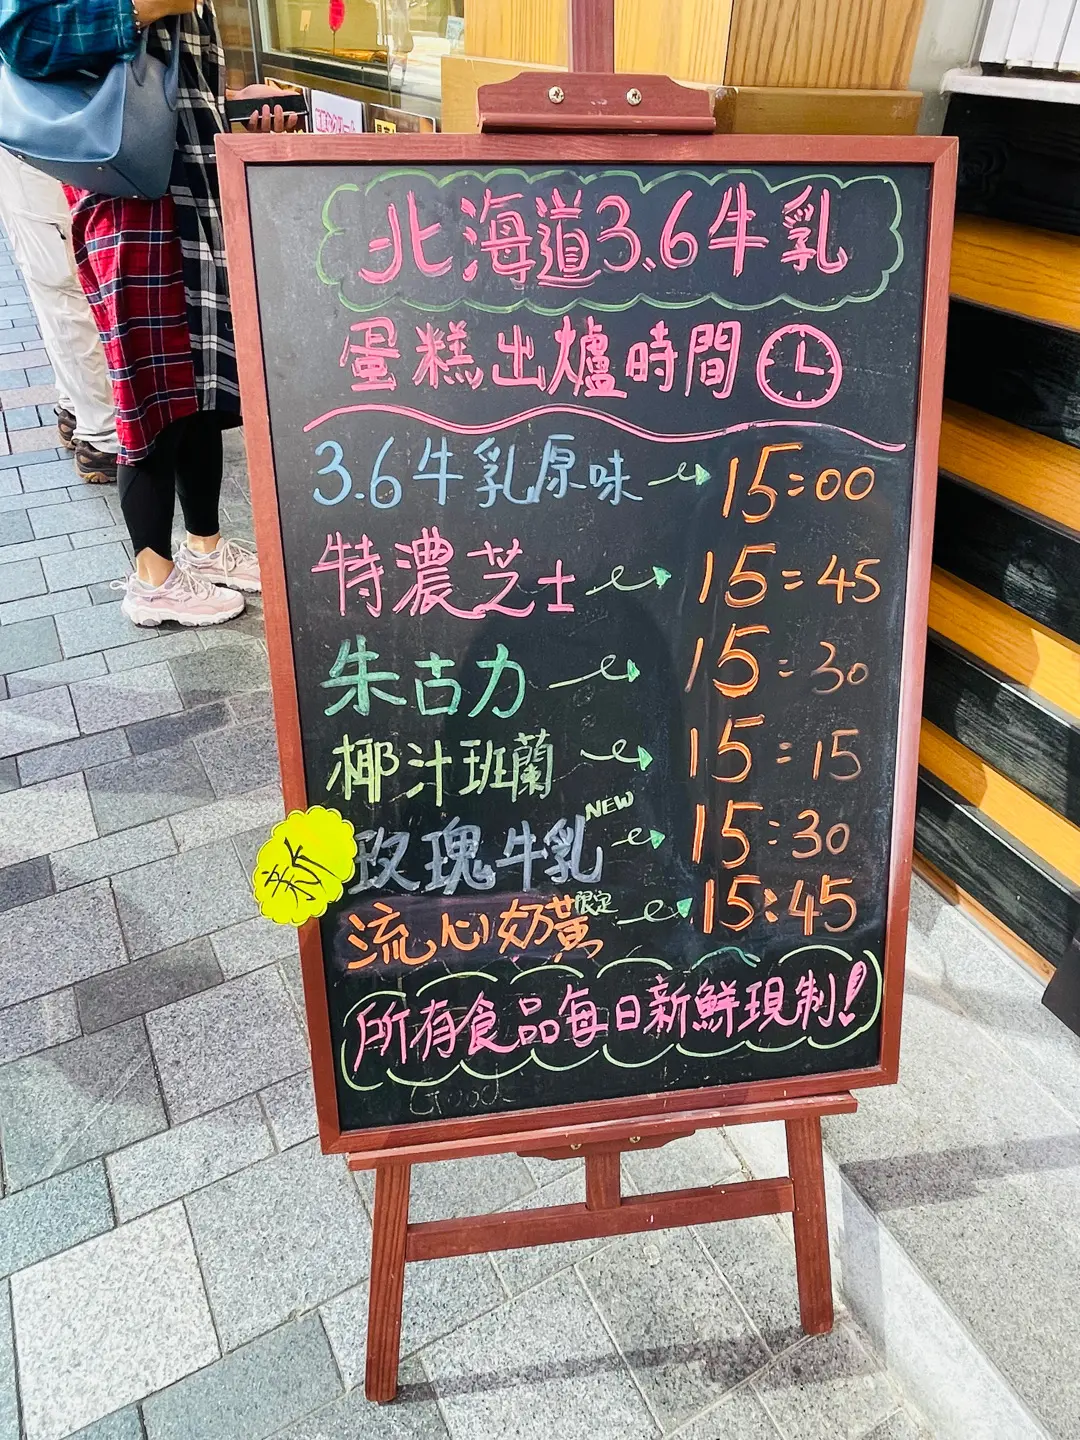 北海道3.6牛乳
蛋糕出爐時間
3.6牛乳原味 15:00
特濃芝士 15:45
朱古力 15:30
椰汁班蘭 15:15
新 玫瑰牛乳 NEW 15:30
流心奶黃 限定 15:45
所有食品每日新鮮現制!
Good